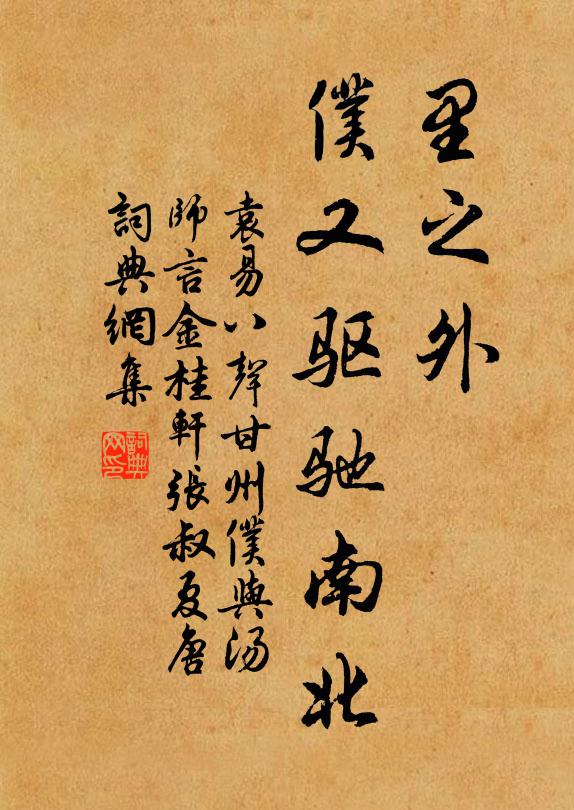 里之外
僕又驱驰南北
袁易八聲甘州僕與汤
師言金桂軒張叔夏唐
詞典網集
詞典网印